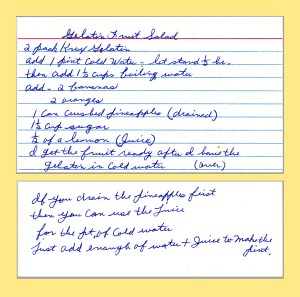 Gelatin Fruit Salad
2 pack Knox Gelatin
add 1 pint Cold Water - let stand ½ hr.
then add 1½ cups boiling water
add - 2 bananas
2 oranges
1 can crushed pineapples (drained)
1½ cup sugar
½ of a lemon (Juice)
I get the fruit ready after I have the
gelatin in cold water (over)
If you drain the pineapples first
then you can use the Juice
for the pt. of Cold water
Just add enough of water + Juice to make the
pint.